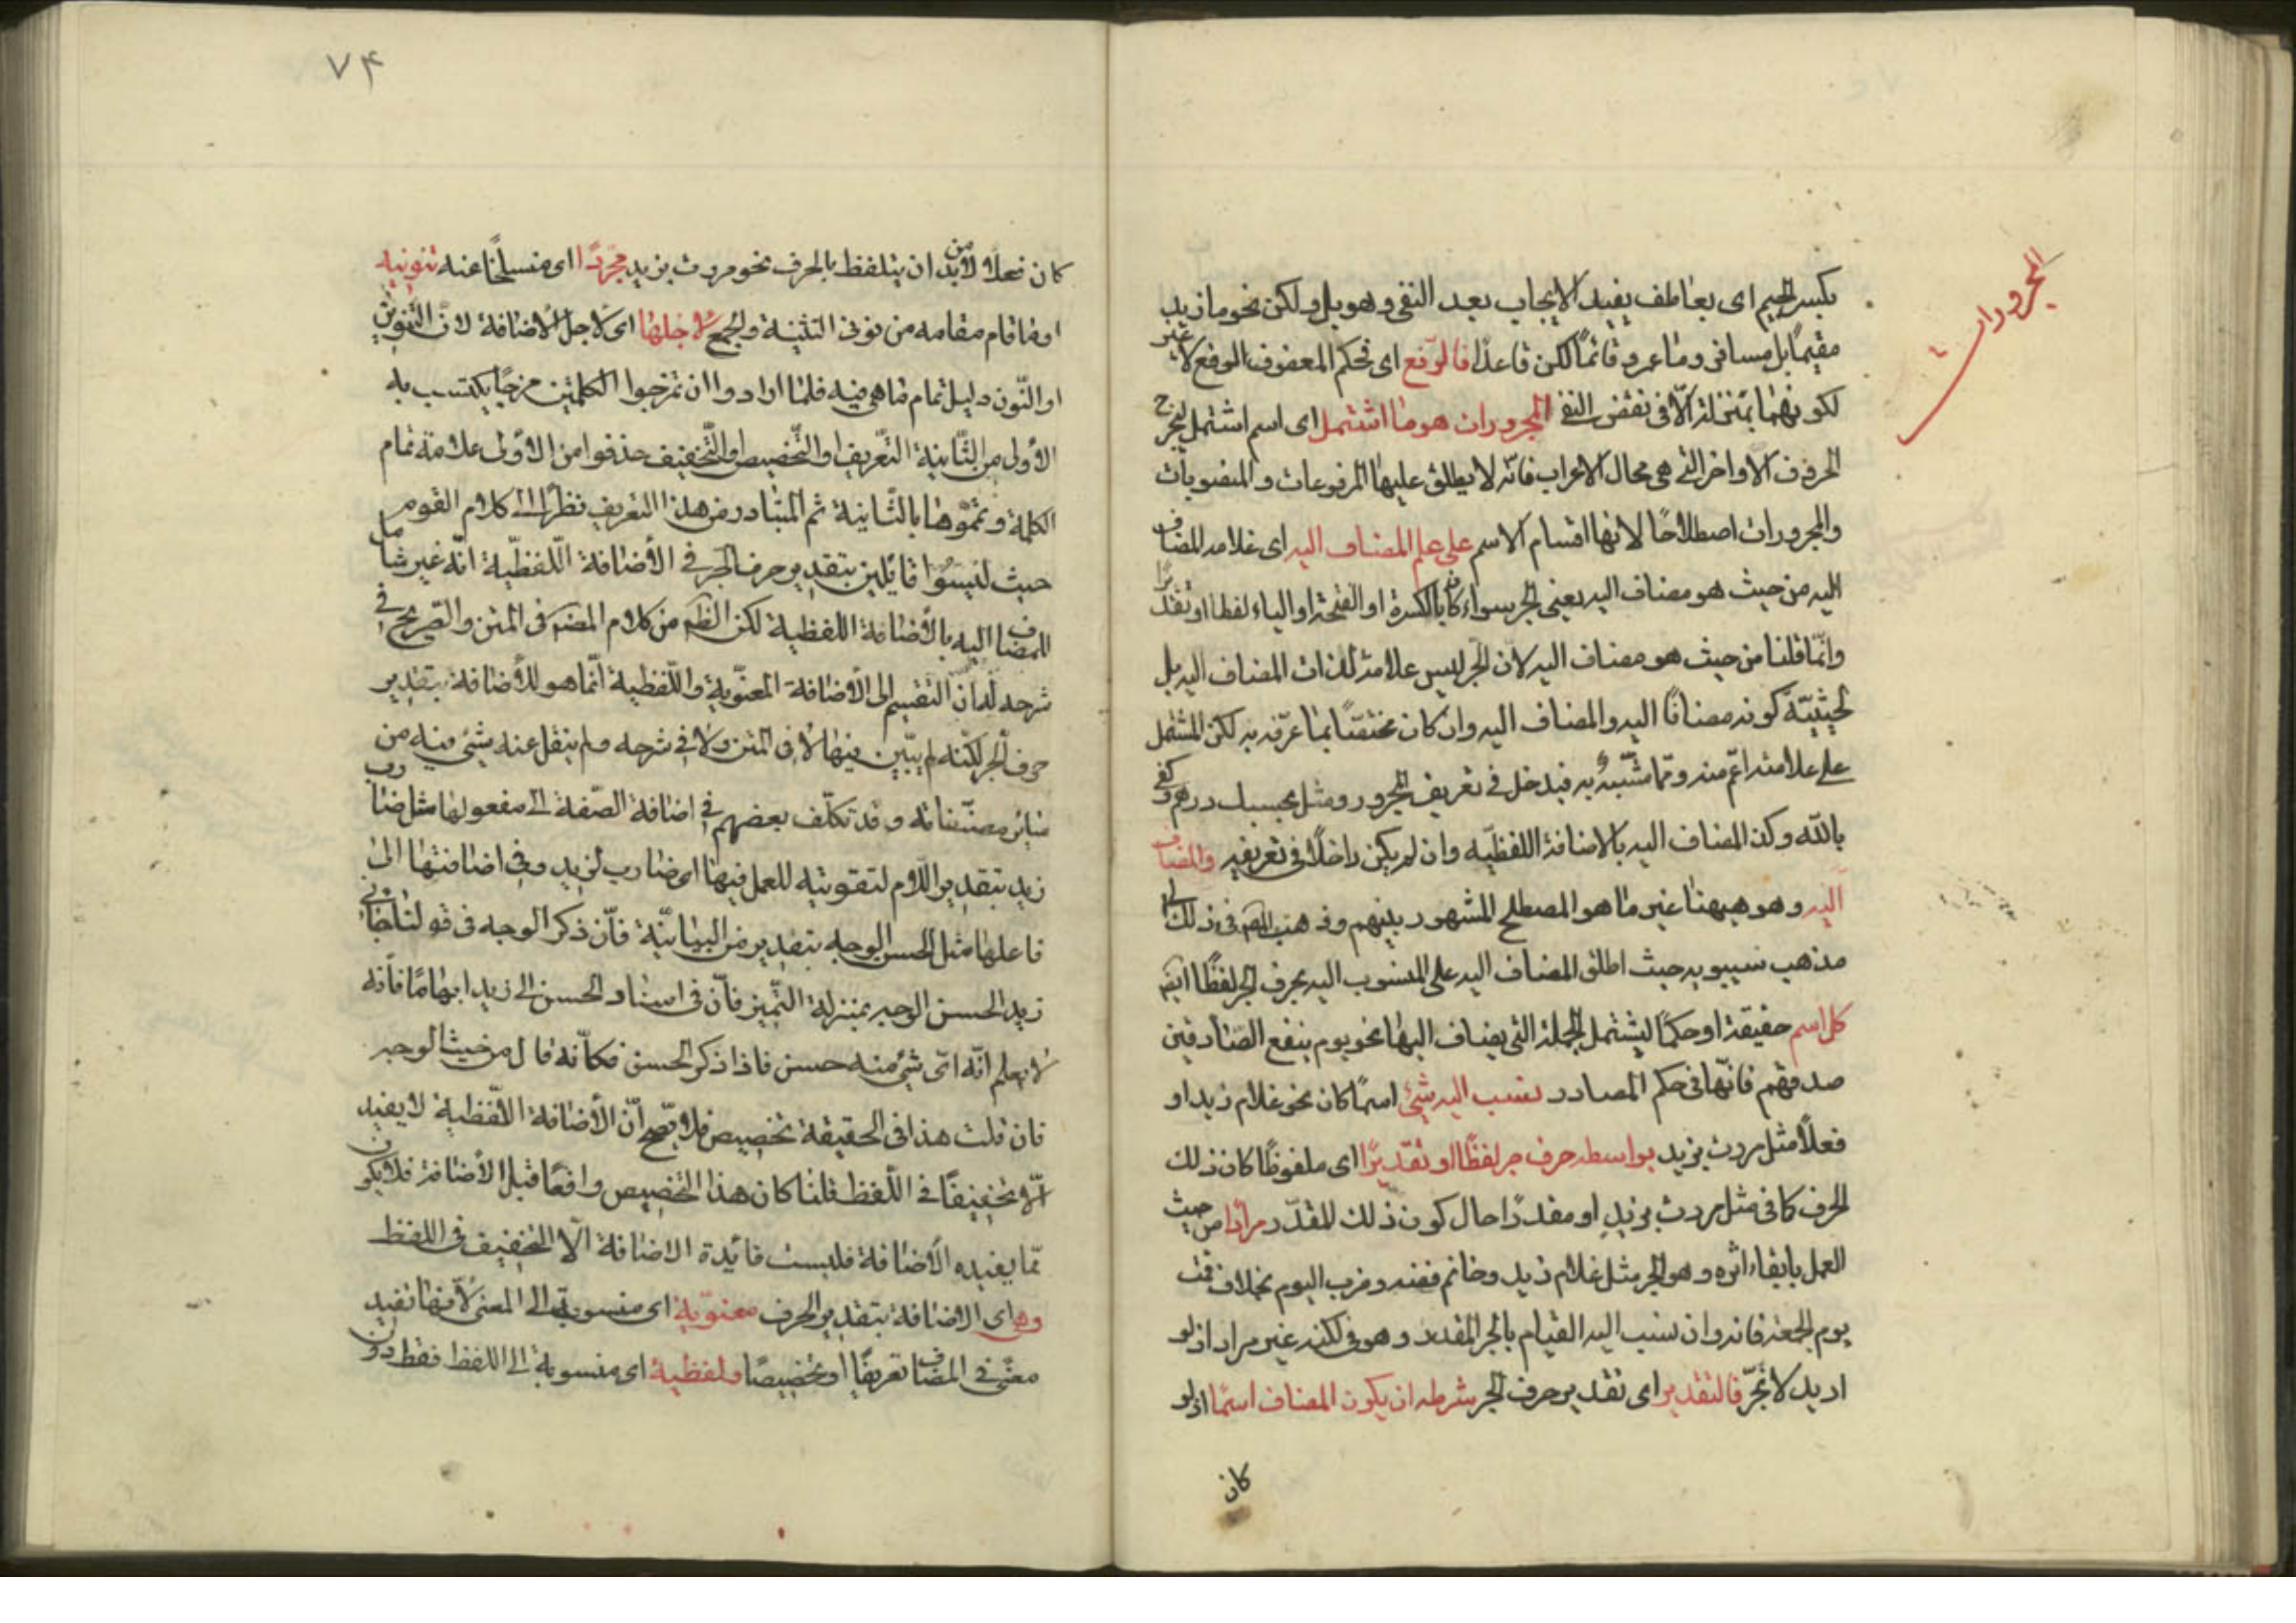 المجرورات
بكسر الجيم اى بعاطف يفيد الايجاب بعد النفى وهو بل ولكن نحو ما زيد
مقيمًا بل مسافر وما عمرو قائمًا لكن قاعد فالرفع اى فحكم المعطوف الرفع لا غير
لكونهما بمنزلة الّا فى نقض النفى المجرورات هو ما اشتمل اى اسم اشتمل ليخرج
الحروف الاواخر التى هى محال الاعراب فانّه لا يطلق عليها المرفوعات والمنصوبات
والمجرورات اصطلاحًا لانها اقسام الاسم على علم المضاف اليه اى علامة المضاف
اليه من حيث هو مضاف اليه يعنى الجر سواء كان بالكسرة او الفتحة او الياء لفظا او تقديرًا
وانّما قلنا من حيث هو مضاف اليه لان الجر ليس علامة لذات المضاف اليه بل
لحيثيّة كونه مضافًا اليه والمضاف اليه وان كان مختصًا بما عرّفه به لكن المشتمل
على علامته اعمّ منه وممّا شبّه به فيدخل فى تعريف المجرور مثل بحسبك درهم وكفى
بالله وكذا المضاف اليه بالاضافة اللفظيّه وان لم يكن داخلًا فى تعريفه والمضاف
اليه وهو هيهنا غير ما هو المصطلح المشهور بينهم وذهب المص فى ذلك الى
مذهب سيبويه حيث اطلق المضاف اليه على المنسوب اليه بحرف الجر لفظًا ايضا
كل اسم حقيقة او حكمًا ليشتمل الجملة التى يضاف اليها نحو يوم ينفع الصّادقين
صدقهم فانّها فى حكم المصادر نسب اليه شئ اسمًا كان نحو غلام زيد او
فعلًا مثل مررت بزيد بواسطه حرف جر لفظًا او تقديرًا اى ملفوظًا كان ذلك
الحرف كما فى مثل مررت بزيد او مقدرًا حال كون ذلك المقدّر مرادًا من حيث
العمل بابقاء اثره وهو الجر مثل غلام زيد وخاتم فضه وضرب اليوم بخلاف قمت
يوم الجمعة فانه وان نسب اليه القيام بالجر المقدر وهو فى لكنه غير مراد اذ لو
اريد لانجرّ فالتقدير اى تقدير حرف الجر شرطه ان يكون المضاف اسمًا اذ لو
كان
٧٤
كان فعلًا لا بدّ من ان يتلفظ بالحرف نحو مررت بزيد مجردًا اى منسلخًا عنه تنوينه
او ما قام مقامه من نونى التثنية والجمع لاجلها اى لاجل الاضافة لانّ التنوين
او النّون دليل تمام ما هى فيه فلمّا ارادوا ان تمزجوا الكلمتين مزجًا يكتسب به
الاولى من الثّانية التّعريف او التّخصيص او التّخفيف حذفوا من الاولى علامة تمام
الكلمة وتمّموها بالثّانية ثم المتبادر من هذا التعريف نظرًا الى كلام القوم
حيث ليسوا قائلين بتقدير حرف الجر فى الاضافة اللفظيّة انّه غير شامل
للمضاف اليه بالاضافة اللفظية لكن الظم من كلام المص فى المتن والتصريح فى
شرحه له ان التقسيم الى الاضافة المعنويّة واللّفظية انّما هو للاضافة بتقدير
حرف الجر لكنّه لم يبيّن فيها لا فى المتن ولا فى شرحه ولم ينقل عنه شئ فيه من
سائر مصنّفاته وقد تكلّف بعضهم فى اضافة الصّفة الى مفعولها مثل ضارب
زيد بتقدير اللّام لتقوية للعمل فيها اى ضارب لزيد وفى اضافتها الى
فاعلها مثل الحسن الوجه بتقدير من البيانيّة فانّ ذكر الوجه فى قولنا جائنى
زيد الحسن الوجه بمنزلة التّميز فانّ فى اسناد الحسن الى زيد ابهامًا فانه
لا يعلم انّه اىّ شئ منه حسن فاذا ذكر الحسن فكانّه قال من حيث الوجه
فان قلت هذا فى الحقيقة تخصيص فلا يصح انّ الاضافة اللّفظية لا يفيد
الّا تخفيفًا فى اللّفظ قلنا كان هذا التخصيص واقعًا قبل الاضافة فلا يكون
ممّا يفيده الاضافة فليست فائدة الاضافة الّا التخفيف فى اللفظ
وهى اى الاضافة بتقدير الحرف معنويّة اى منسوبة الى المعنى لانّها تفيد
معنًى فى المضاف تعريفًا او تخصيصًا ولفظية اى منسوبة الى اللفظ فقط دون